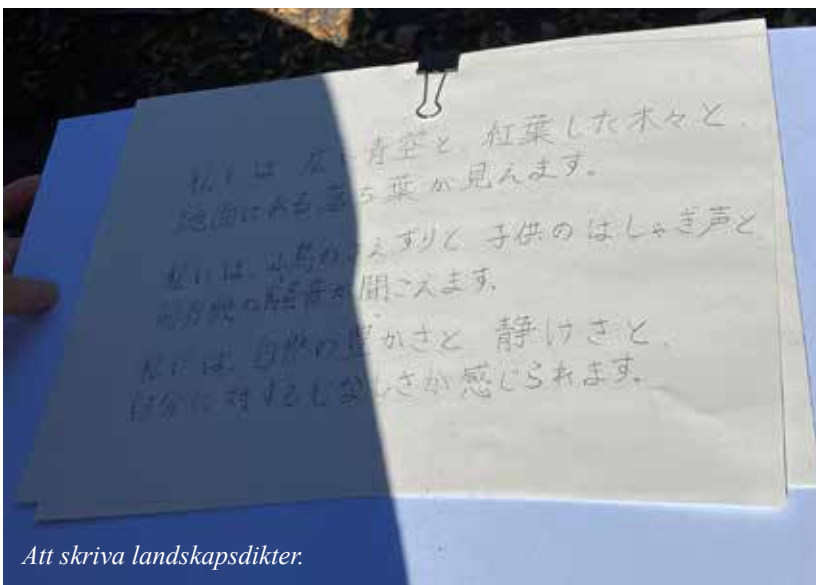 私には 広い青空と、紅葉した木々と、
地面にある落ち葉が見えます。
私には、小鳥のさえずりと 子供のはしゃぎ声と
の騒音が聞こえます。
私には、自然の豊かさと 静けさと、
自分に対する しさが感じられます。
Att skriva landskapsdikter.